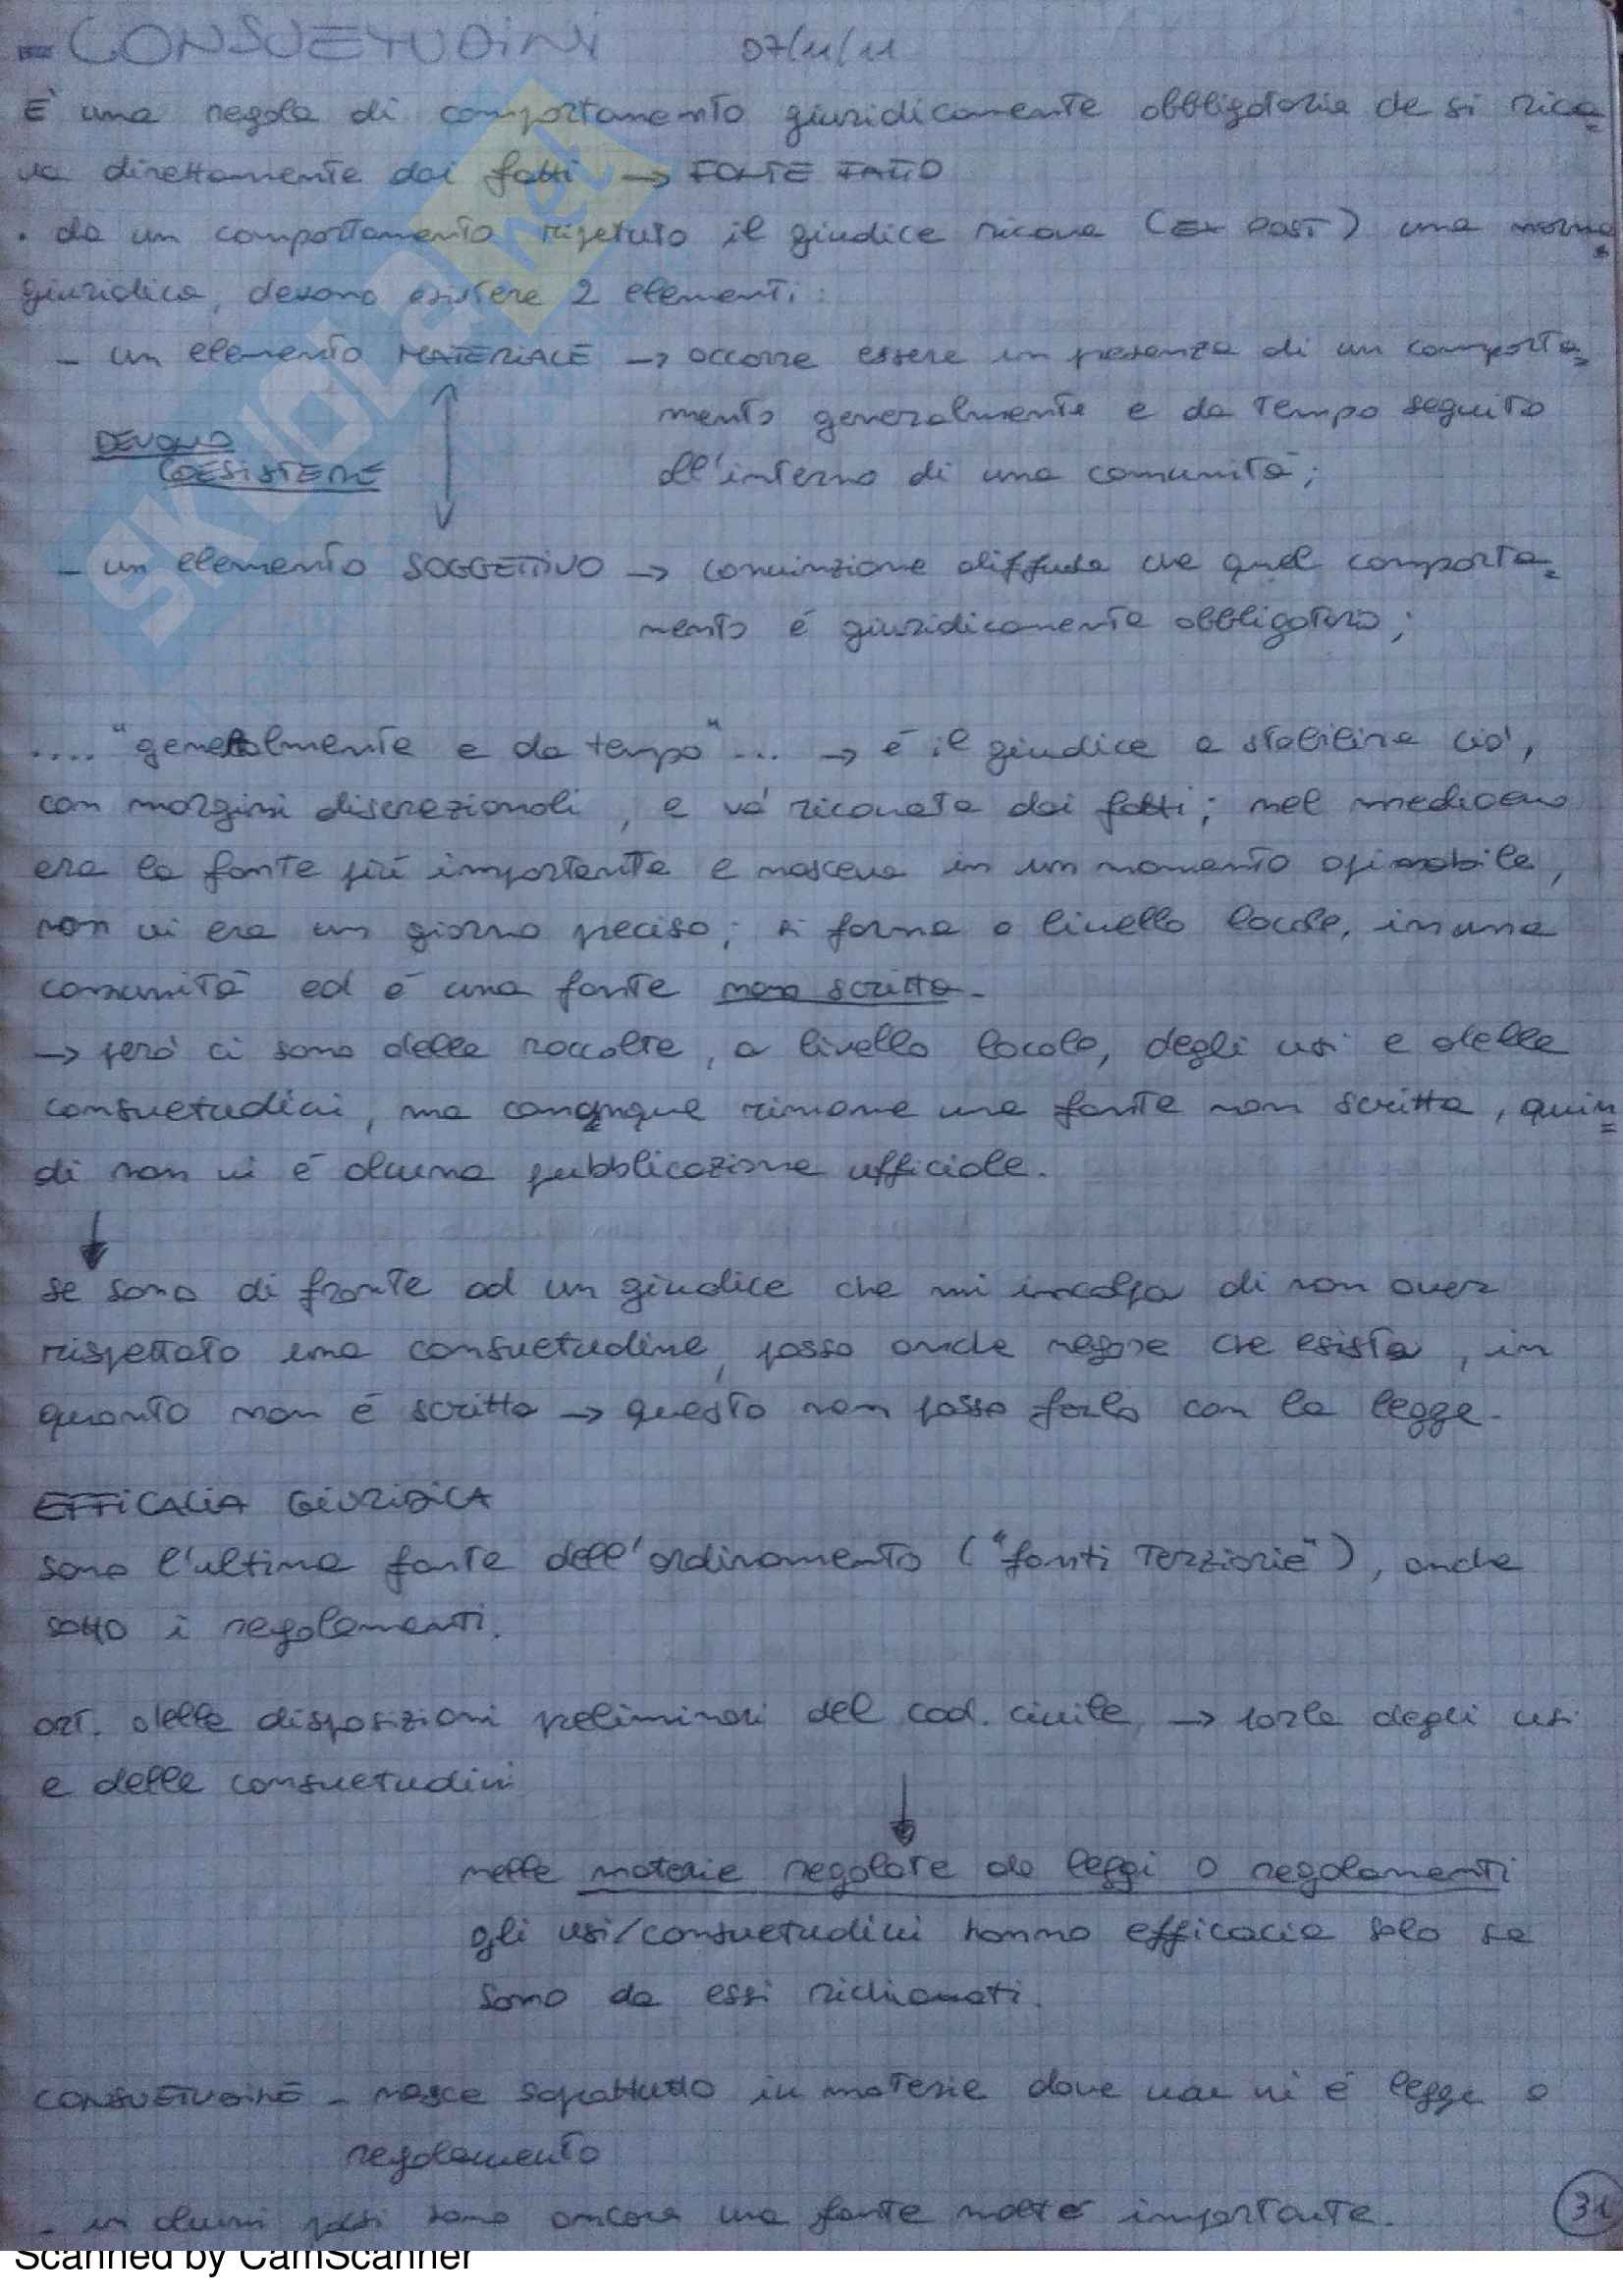 - CONSUETUDINI 07/11/11
È una regola di comportamento giuridicamente obbligatoria che si rica=
va direttamente dai fatti → FONTE FATTO
. da un comportamento ripetuto il giudice ricava (EX POST) una norma
giuridica, devono esistere 2 elementi:
- un elemento MATERIALE → occorre essere in presenza di un comporta=
mento generalmente e da tempo seguito
DEVONO
COESISTERE
all'interno di una comunità;
- un elemento SOGGETTIVO → convinzione diffusa che quel comporta=
mento é giuridicamente obbligatorio;
.... "generalmente e da tempo"... → é il giudice a stabilire ciò,
con margini discrezionali, e và ricavata dai fatti; nel medioevo
era la fonte più importante e nasceva in un momento opinabile,
non vi era un giorno preciso; si forma a livello locale, in una
comunità ed é una fonte non scritta.
→ però ci sono delle raccolte, a livello locale, degli usi e delle
consuetudini, ma comunque rimane una fonte non scritta, quin=
di non vi é alcuna pubblicazione ufficiale.
↓
se sono di fronte ad un giudice che mi incolpa di non aver
rispettato una consuetudine, posso anche negare che esista, in
quanto non é scritta → questo non posso farlo con la legge.
EFFICACIA GIURIDICA
sono l'ultima fonte dell'ordinamento ("fonti terziarie"), anche
sotto i regolamenti.
art. delle disposizioni preliminari del cod. civile → parla degli usi
e delle consuetudini
↓
nelle materie regolate da leggi o regolamenti
gli usi/consuetudini hanno efficacia solo se
sono da essi richiamati.
CONSUETUDINE - nasce soprattutto in materie dove non vi é legge o
regolamento
- in alcuni sono ancora una fonte molto importante.
31
SKUOLA.net
Scanned by CamScanner